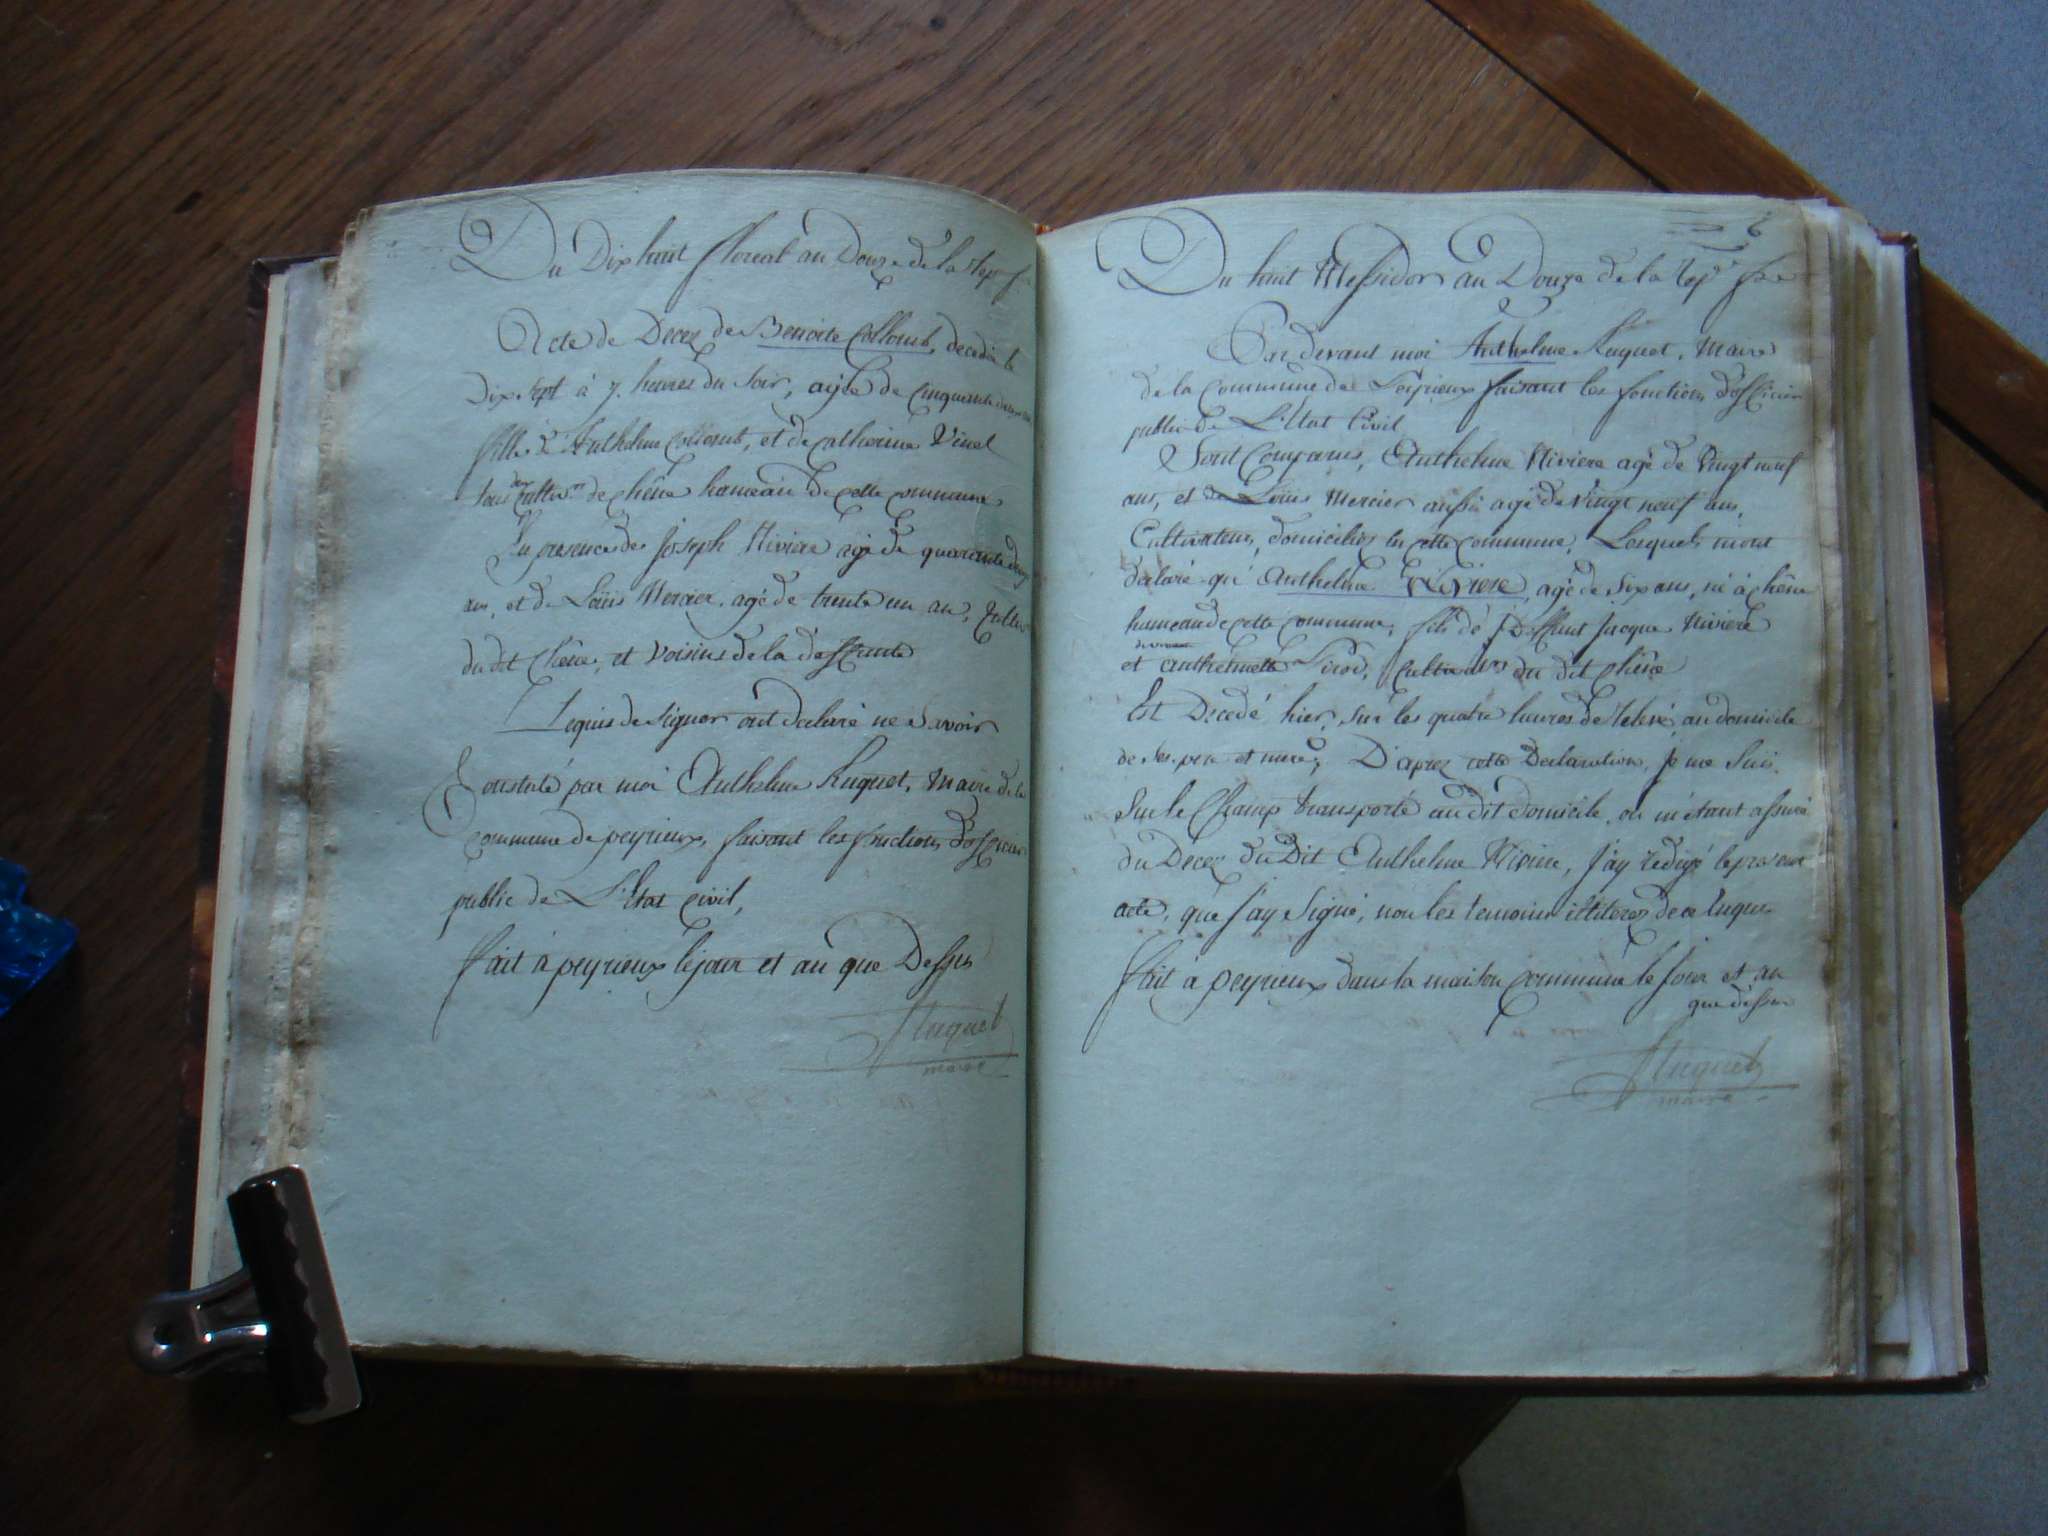 Du Dix huit floreal an Douze de la Rep. f.
Acte de Decez de Benoite Collomb, decedée le
Dix sept à 7. heures du Soir, agée de Cinquante
fille d'Anthelme Collomb, et de Catherine Vinel
tous deux Cultiv.rs de Chêne hameau de cette commune
En presence de Joseph Riviere agé de quarante deux
ans, et de Loüis Mercier, agé de trente un an, Cultiv
du dit Chêne, et Voisins de la deffunte
Requis de Signer ont declaré ne Savoir
Constaté par moi Anthelme Huguet, Maire de la
Commune de peyrieux, faisant les fonctions d'officier
public de L'Etat Civil,
fait à peyrieux le jour et an que Dessus
Huguet
maire
6
Du huit Messidor an Douze de la Rep. f.se
Par devant moi Anthelme Huguet, Maire
de la Commune de Peyrieux faisant les fonctions d'officier
public de L'Etat Civil
Sont Comparus, Anthelme Riviere agé de Vingt neuf
ans, et de Loüis Mercier aussi agé de Vingt neuf ans,
Cultivateurs, domiciliés en cette Commune, Lesquels mont
declaré qu'Anthelme Riviere, agé de Six ans, né à Chêne
hameau de cette Commune, fils de deffunt Jacque Riviere
et Anthelmette Sirod, Cultivat.rs du dit Chêne
Est Decedé hier, Sur les quatre heures de relevé, au domicile
de Ses pere et mere; D'aprez cette Declaration, Je me Suis
Sur le Champ transporté au dit domicile, ou m'étant assuré
du Décez du Dit Anthelme Riviere, J'ay redigé le present
acte, que J'ay Signé, non les temoins illiterez de ce Enquis
fait à peyrieux dans la maison Commune le Jour et an
que dessus
Huguet
maire